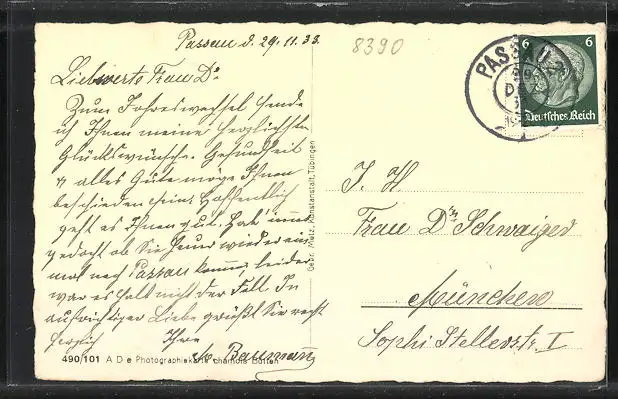 Passau d. 29.11.33.
8390
Liebwerte Frau Dr.
Zum Jahreswechsel sende
ich Ihnen meine herzlichsten
Glückswünsche. Gesundheit
u alles Gute möge Ihnen
beschieden sein. Hoffentlich
geht es Ihnen gut. Hab' immer
gedacht ob Sie heuer wieder ein
mal nach Passau kommen, leider
war es halt nicht der Fall. In
aufrichtiger Liebe grüßt Sie recht
herzlich Ihre
M. Baumann
490/101 A D e Photographiekarte chamois Bütten
Gebr. Metz, Kunstanstalt, Tübingen
PASSAU 2
6 6
Deutsches Reich
I. H
Frau Dr. Schwaiger
München
Sophie Stellerstr. I